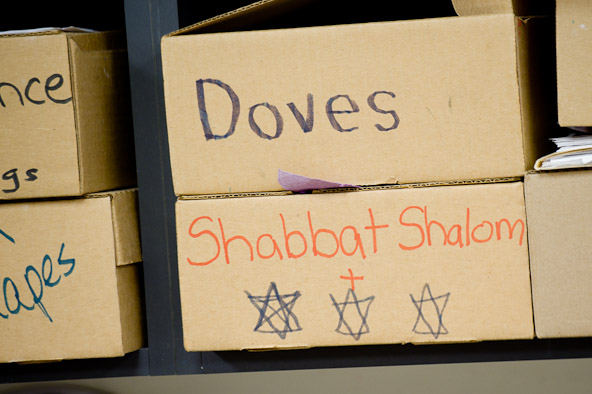 Doves
Shabbat Shalom
+
nce
gs
apes